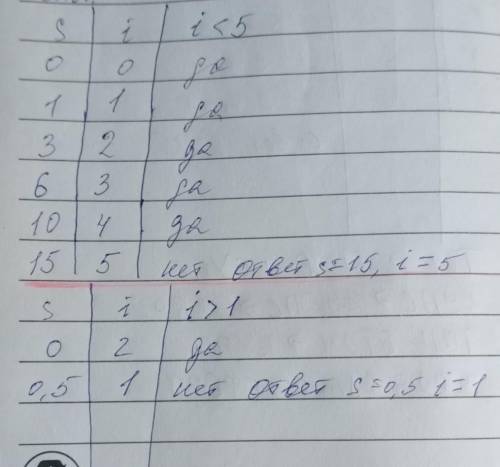 s i i < 5
0 0 да
1 1 да
3 2 да
6 3 да
10 4 да
15 5 нет ответ s=15, i=5
s i i > 1
0 2 да
0,5 1 нет ответ s=0,5 i=1